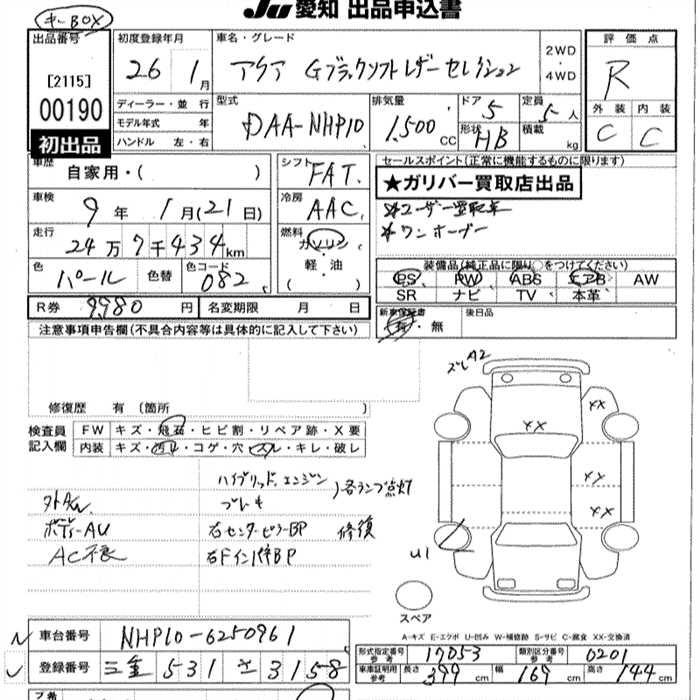 キーBOX
JU 愛知 出品申込書
出品番号
[2115]
00190
初出品
初度登録年月
26年 1月
車名・グレード
アクア Gブラックソフトレザーセレクション
2WD
・
4WD
評価点
R
外装 内装
C C
ディーラー・並行
モデル年式 年
ハンドル 左・右
型式
DAA-NHP10
排気量
1,500 CC
ドア 5
形状 HB
定員 5人
積載 kg
車歴
自家用・( )
シフト FAT
セールスポイント(正常に機能するものに限ります)
★ガリバー買取店出品
※ユーザー買取車
※ワンオーナー
車検
9年 1月(21日)
冷房 AAC
走行
24万7千434km
燃料
ガソリン
軽・油
( )
色 パール 色替
色コード 082
装備品(純正品に限り○をつけてください)
PS PW ABS エアB AW
SR ナビ TV 本革
R券 9,980円
名変期限 月 日
新車保証書
有・無
後日品
注意事項申告欄(不具合内容等は具体的に記入して下さい)
修復歴 有 (箇所 )
ズレA2
検査員
記入欄
FW キズ・飛石・ヒビ割・リペア跡・X要
内装 キズ・汚れ・コゲ・穴・スレ・キレ・破レ
XX
XX
XX
XX
ハイブリッド、エンジン
ブレーキ
)各ランプ点灯
外AW
ボディーAU
右センターピラーBP 修復
AC不良
右FインパネBP
U1
スペア
A-キズ E-エクボ U-凹み W-補修跡 S-サビ C-腐食 XX-交換済
車台番号 NHP10-6250961
登録番号 三重 531 ま 3158
形式指定番号
参考
17053
類別区分番号
参考
0201
車庫証明用
参考
長さ 399cm 幅 169cm 高さ 144cm